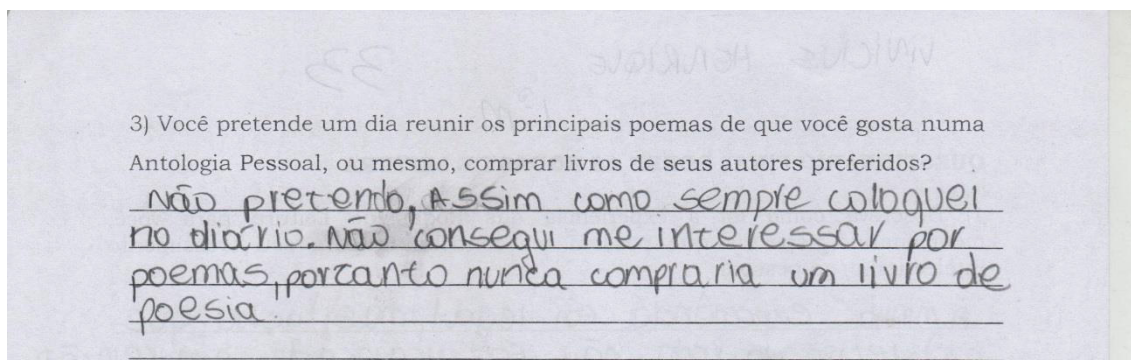 3) Você pretende um dia reunir os principais poemas de que você gosta numa
Antologia Pessoal, ou mesmo, comprar livros de seus autores preferidos?
Não pretendo, Assim como sempre coloquei
no diário. Não consegui me interessar por
poemas, portanto nunca compraria um livro de
poesia.